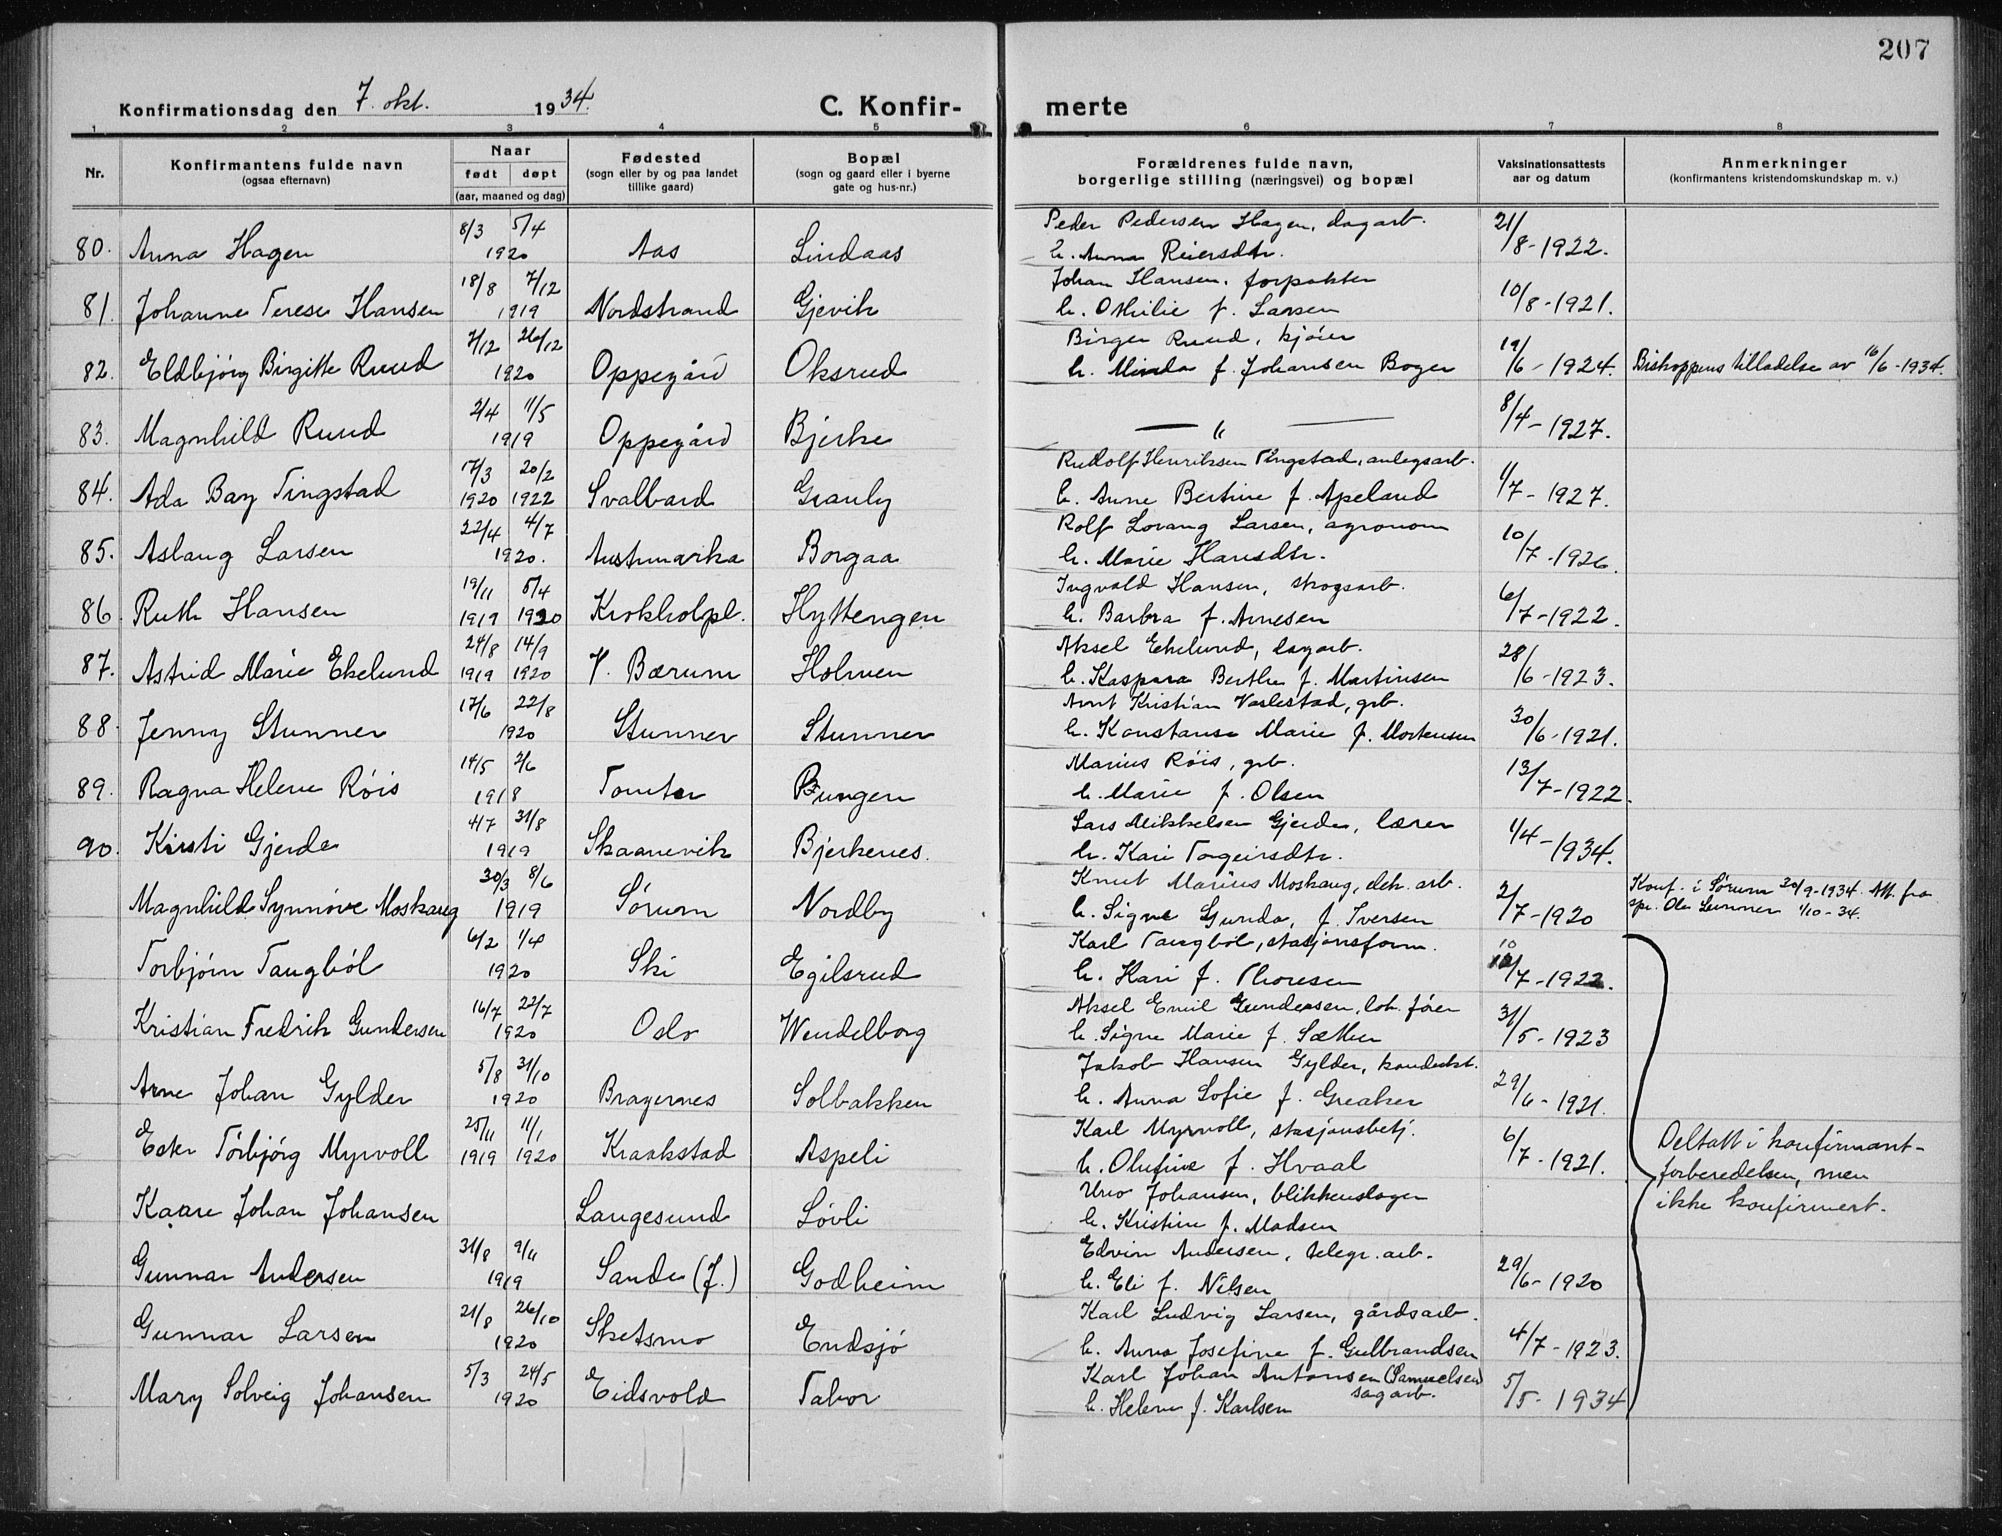 207
Konfirmationsdag den 7. okt. 1934. C. Konfir- merte
1 2 3 4 5 6 7 8
Nr. Konfirmantens fulde navn (ogsaa efternavn) Naar født døpt (aar, maaned og dag) Fødested (sogn eller by og paa landet tillike gaard) Bopæl (sogn og gaard eller i byerne gate og hus-nr.) Forældrenes fulde navn, borgerlige stilling (næringsvei) og bopæl Vaksinationsattests aar og datum Anmerkninger (konfirmantens kristendomskundskap m. v.)
8/3 5/4 Peder Pedersen Hagen, dagarb. 21/
80. Anna Hagen 1920 Aas Lindaas h. Anna Reiersdtr. 8-1922.
18/8 7/12 Johan Hansen, forpakter
81. Johanne Terese Hansen 1919 Nordstrand Gjevik h. Othilie f. Larsen 10/8-1921.
7/12 26/12 Birger Ruud, kjøier 19/
82. Eldbjørg Birgitte Ruud 1920 Oppegård Oksrud h. Minda f. Johansen Boger 6-1924. Biskoppens tilladelse av 16/6-1934.
2/4 11/5
83. Magnhild Ruud 1919 Oppegård Bjerke — " — 8/4-1927.
17/3 20/2 Rudolf Henriksen Tingstad, anlegsarb.
84. Ada Bay Tingstad 1920 1922 Svalbard Granly h. Anne Bertine f. Apeland 1/7-1927.
22/4 4/7 Rolf Lovang Larsen, agronom
85. Aslaug Larsen 1920. Austmarka Borgaa h. Marie Hansdtr. 10/7-1926.
19/11 5/4 Ingvald Hansen, skogsarb.
86. Ruth Hansen 1919 1920 Krokholpl. Hyttengen h. Barbra f. Arnesen 6/7-1922.
24/8 14/9 Aksel Ekelund, dagarb. 28/
87. Astrid Marie Ekelund 1919 1920 V. Bærum Holmen h. Kaspara Berthe f. Martinsen 6-1923.
17/6 22/8 Arnt Kristian Varlestad, grb.
88. Jenny Stunner 1920 Stunner Stunner h. Konstanse Marie f. Mortensen 30/6-1921.
14/5 2/6 Marius Röis, grb.
89. Ragna Helene Röis 1918 Tomter Bungen h. Marie f. Olsen 13/7-1922.
4/7 31/8 Lars Mikkelsen Gjerde, lærer
90. Kirsti Gjerde 1919 Skaanevik Bjerkenes. h. Kari Torgeirsdtr. 1/4-1934.
30/3 8/6 Knut Marius Moskaug, elek. arb. Konf. i Sørum 30/9-1934. Att. fra
Magnhild Synnöve Moskaug 1919 Sørum Nordby h. Signe Gunda, f. Iversen 2/7-1920 spr. Ole Sunner 1/10-34.
6/2 1/4 Karl Taugböl, stasjonsform. 10
Torbjörn Taugböl 1920 Ski Egilsrud h. Kari f. Thoresen /7-1922.
16/7 22/7 Aksel Emil Gundersen, lok. förer
Kristian Fredrik Gundersen 1920 Oslo Wendelborg h. Signe Marie f. Sæther 31/5-1923
5/8 31/10 Jakob Hansen Gylder, kondukt.
Arne Johan Gylder 1920 Bragernes Solbakken h. Anna Sofie f. Greaker 29/6-1921.
25/11 11/1 Karl Myrvoll, stasjonsbetj.
Ester Torbjørg Myrvoll 1919 1920 Kraakstad Aspeli h. Olufine f. Hvaal 6/7-1921. Deltatt i konfirmant-
Uno Johansen, blikkenslager forberedelsen, men
Kaare Johan Johansen Langesund Løvli h. Kristine f. Madsen ikke konfirmert.
31/8 9/11 Edvin Andersen, telegr. arb.
Gunnar Andersen 1919 Sande (J.) Godheim h. Eli f. Nilsen 29/6-1920
21/8 26/10 Karl Ludvig Larsen, gårdsarb.
Gunnar Larsen 1920 Sketsmo Endsjø h. Anna Josefine f. Gulbrandsen 4/7-1923.
5/3 24/5 Karl Johan Antonsen (Samuelsen)
Mary Solveig Johansen 1920 Eidsvold Tabor h. Helene f. Karlsen sagarb. 5/5-1934